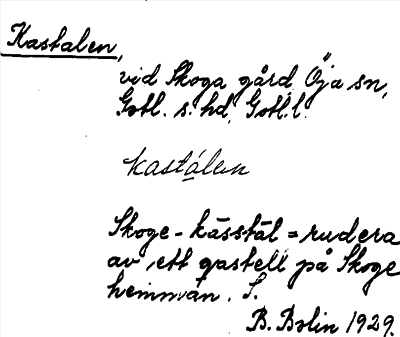 Kastalen,
vid Skoga gård, Öja sn,
Gotl. s. hd, Gotl. l.
kastálen
Skoge-kässtäl = rudera
av ett qastell på Skoge
hemman. S.
B. Bolin 1929.